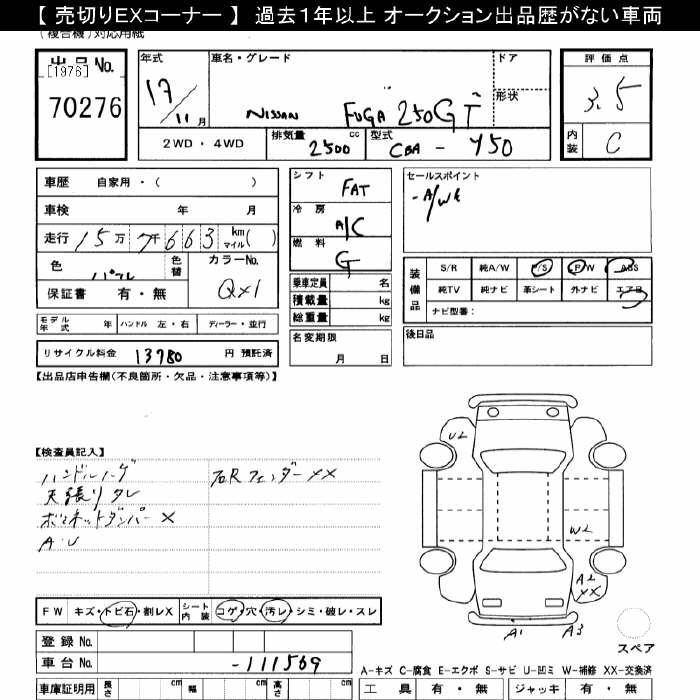 【 売切りEXコーナー 】 過去１年以上 オークション出品歴がない車両
(複合機)対応用紙
出品No.
[1976]
70276
年式
17/11月
車名・グレード
NISSAN FUGA 250GT
ドア
形状
評価点
3.5
内装 C
2WD・4WD
排気量 2500 cc
型式 CBA - Y50
車歴 自家用・( )
車検 年 月
走行 15万7千663 km マイル( )
色 パール
色替
カラーNo. QX1
保証書 有・無
シフト FAT
冷房 A/C
燃料 G
乗車定員 名
積載量 kg
総重量 kg
セールスポイント
-A/WE
装備品
S/R 純A/W P/S P/W ABS
純TV 純ナビ 革シート 外ナビ エアB
ナビ型番:
モデル年式 年 ハンドル 左・右 ディーラー・並行
名変期限 月 日
後日品
リサイクル料金 13780 円 預託済
【出品店申告欄(不良箇所・欠品・注意事項等)】
【検査員記入】
ハンドルハゲ
右Rフェンダー XX
天張りタレ
ボンネットダンパー X
A・U
U2
W2
A2
XX
A1
A3
スペア
FW キズ・トビ石・割レX
シート内装 コゲ・穴・汚レ・シミ・破レ・スレ
登録No.
車台No. -111569
A-キズ C-腐食 E-エクボ S-サビ U-凹ミ W-補修 XX-交換済
車庫証明用 長さ cm 幅 cm 高さ cm
工具 有・無 ジャッキ 有・無